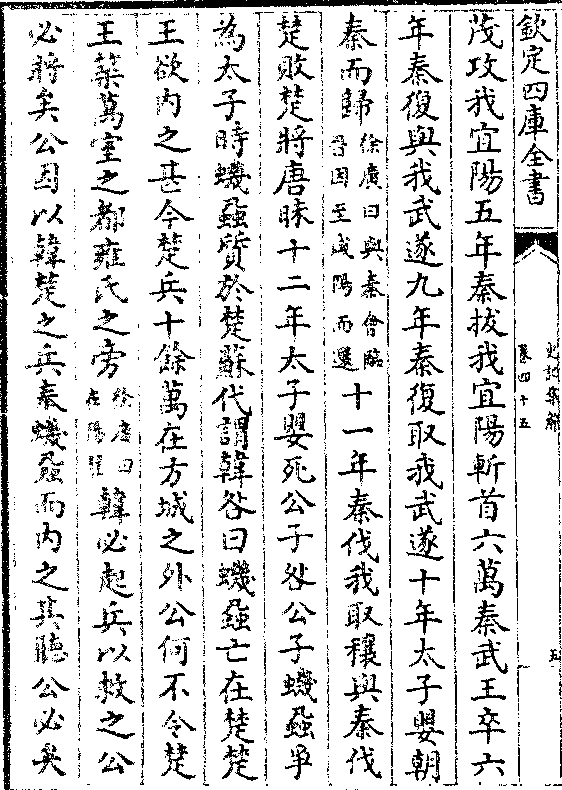 欽定四庫全書
史記集解
卷四十五
五
茂攻我宜陽五年秦拔我宜陽斬首六萬秦武王卒六
年秦復與我武遂九年秦復取我武遂十年太子嬰朝
秦而歸徐廣曰與秦會臨
晉因至咸陽而還十一年秦伐我取穰與秦伐
楚敗楚將唐昧十二年太子嬰死公子咎公子蟣蝨爭
為太子時蟣蝨質於楚蘇代謂韓咎曰蟣蝨亡在楚楚
王欲内之甚今楚兵十餘萬在方城之外公何不令楚
王築萬室之都雍氏之旁徐廣曰
在陽翟韓必起兵以救之公
必將矣公因以韓楚之兵奉蟣蝨而内之其聽公必矣